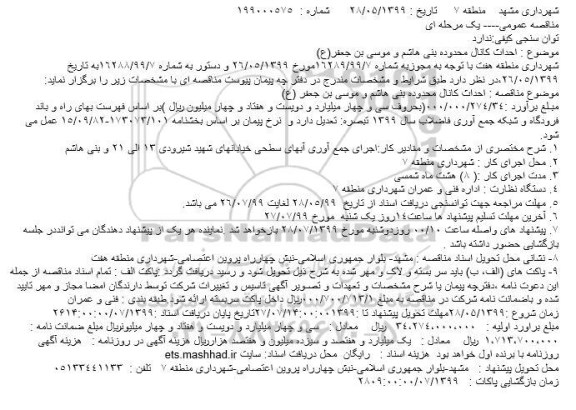 شهرداری مشهد   منطقه ۷   تاریخ : ۲۸/۰۵/۱۳۹۹   شماره : ۱۹۹۰۰۰۵۷۵
مناقصه عمومی---- یک مرحله ای
توان سنجی کیفی:ندارد
موضوع : احداث کانال محدوده بنی هاشم و موسی بن جعفر(ع)
شهرداری منطقه هفت با توجه به مجوزبه شماره ۱۶۲۸۹/۹۹/۷مورخ ۲۶/۰۵/۱۳۹۹ و دستور به شماره ۱۶۲۸۸/۹۹/۷به تاریخ
۲۶/۰۵/۱۳۹۹،در نظر دارد طبق شرایط و مشخصات مندرج در دفتر چه پیمان پیوست مناقصه ای با مشخصات زیر را برگزار نماید:
موضوع مناقصه : احداث کانال محدوده بنی هاشم و موسی بن جعفر (ع)
مبلغ برآورد :۰۰۰/۰۰۰/۲۷۴/۳۴(بحروف سی و چهار میلیارد و دویست و هفتاد و چهار میلیون ریال )بر اساس فهرست بهای راه و باند
فرودگاه و شبکه جمع آوری فاضلاب سال ۱۳۹۹ تبصره: تعدیل دارد و نرخ پیمان بر اساس بخشنامه ۱۷۳۰۷۳/۱۰۱-۱۵/۰۹/۸۲ عمل می
شود.
۱. شرح مختصری از مشخصات و مقادیر کار:اجرای جمع آوری آبهای سطحی خیابانهای شهید شیرودی ۱۳ الی ۲۱ و بنی هاشم
۲. محل اجرای کار : شهرداری منطقه ۷
۳. مدت اجرای کار :( ۸) هشت ماه شمسی
۴. دستگاه نظارت : اداره فنی و عمران شهرداری منطقه ۷
۵. مهلت مراجعه جهت توانسنجی دریافت اسناد از تاریخ ۲۸/۰۵/۹۹ لغایت ۲۶/۰۷/۹۹ می باشد.
۶. آخرین مهلت تسلیم پیشنهاد ها ساعت۱۴روز یک شنبه مورخ ۲۷/۰۷/۹۹
۷. پیشنهاد های واصله ساعت ۰۰/۱۰ روزدوشنبه مورخ ۲۸/۰۷/۱۳۹۹ بازخواهد شد. نماینده هر یک از پیشنهاد دهندگان می توانددر جلسه
بازگشایی حضور داشته باشد .
۸- نشانی محل تحویل اسناد مناقصه : مشهد- بلوار جمهوری اسلامی-نبش چهارراه پروین اعتصامی-شهرداری منطقه هفت
۹- پاکت های (الف، ب) باید سر بسته و لاک و مهر شده به شرح ذیل تحویل شود و رسید دریافت گردد :پاکت الف : تمام اسناد مناقصه از جمله
این دعوت نامه ،دفترچه پیمان یا شرح مشخصات و تعهدات و تصویر آگهی تاسیس و تغییرات شرکت توسط دارندگان امضا مجاز و مهر تایید
شده و باضمانت نامه شرکت در مناقصه به مبلغ ریال داخل پاکت سربسته ارائه شود طبقه بندی : فنی و عمران
زمان شروع :۲۸/۰۵/۱۳۹۹مهلت تحویل پیشنهاد تا تاریخ پایان دریافت اسناد :
مبلغ براورد اولیه : ۳۴،۲۷۴،۰۰۰،۰۰۰ ریال معادل : سی و چهار میلیارد و دویست و هفتاد و چهار میلیونریال مبلغ ضمانت نامه :
۱،۷۱۳،۷۰۰،۰۰۰ ریال معادل : یک میلیارد و هفتصد و سیزده میلیون و هفتصد هزارریال هزینه آگهی در روزنامه : هزینه آگهی
روزنامه با برنده اول خواهد بود هزینه اسناد : رایگان محل دریافت اسناد: سایت ets.mashhad.ir
محل تحویل پیشنهاد : مشهد-بلوار جمهوری اسلامی-نبش چهارراه پروین اعتصامی-شهرداری منطقه ۷ تلفن : ۰۵۱۳۳۴۴۱۱۳۳
زمان بازگشایی پاکات : ۲۸۰۹:۰۰:۰۰/۰۷/۱۳۹۹